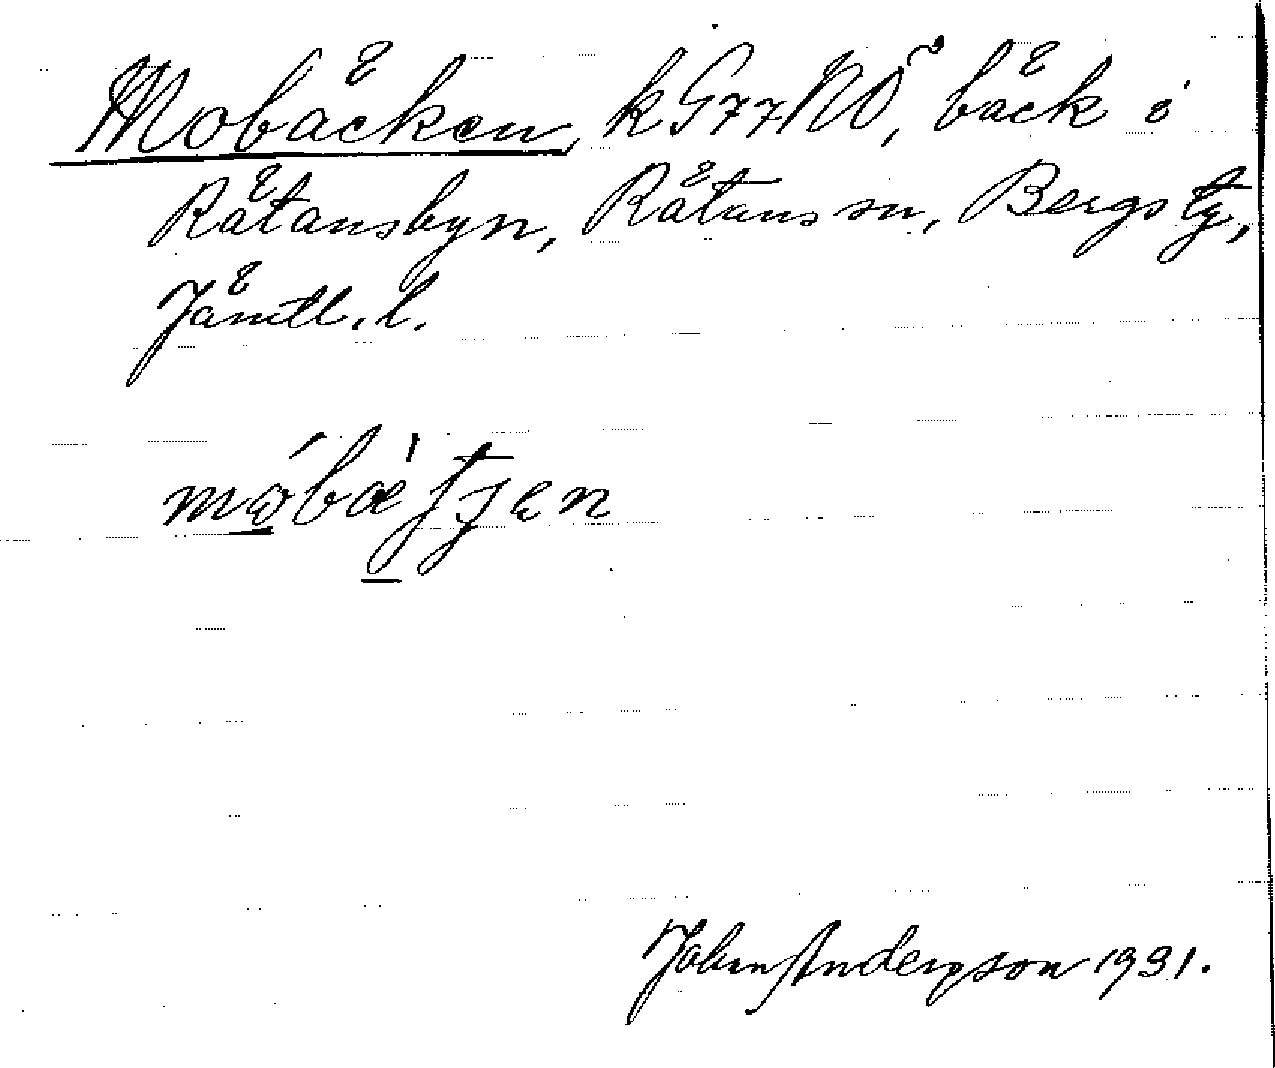 Mobäcken, k G77NÖ, bäck i
Rätansbyn, Rätans sn, Bergs tg,
Jämtl. l.
móbæ̀ʃʃen
John Anderson 1931.